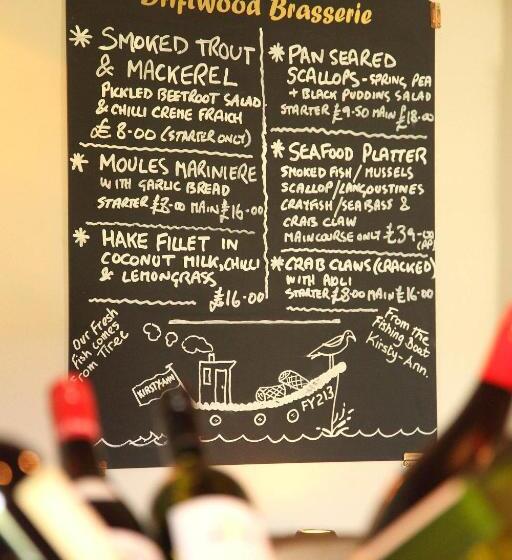 Driftwood Brasserie
* SMOKED TROUT
& MACKEREL
PICKLED BEETROOT SALAD
& CHILLI CREME FRAICH
£8.00 (STARTER ONLY)
* MOULES MARINIERE
WITH GARLIC BREAD
STARTER £8.00 MAIN £16.00
* HAKE FILLET IN
COCONUT MILK, CHILLI
& LEMONGRASS
£16.00
* PAN SEARED
SCALLOPS - SPRING, PEA
+ BLACK PUDDING SALAD
STARTER £9.50 MAIN £18.00
* SEAFOOD PLATTER
SMOKED FISH / MUSSELS
SCALLOP / LANGOUSTINES
CRAYFISH / SEABASS &
CRAB CLAW
MAINCOURSE ONLY £39.00
(PP)
* CRAB CLAWS (CRACKED)
WITH AOLI
STARTER £8.00 MAIN £16.00
Our Fresh
fish comes
from Tiree
From the
Fishing Boat
Kirsty-Ann.
KIRSTYANN
FY213